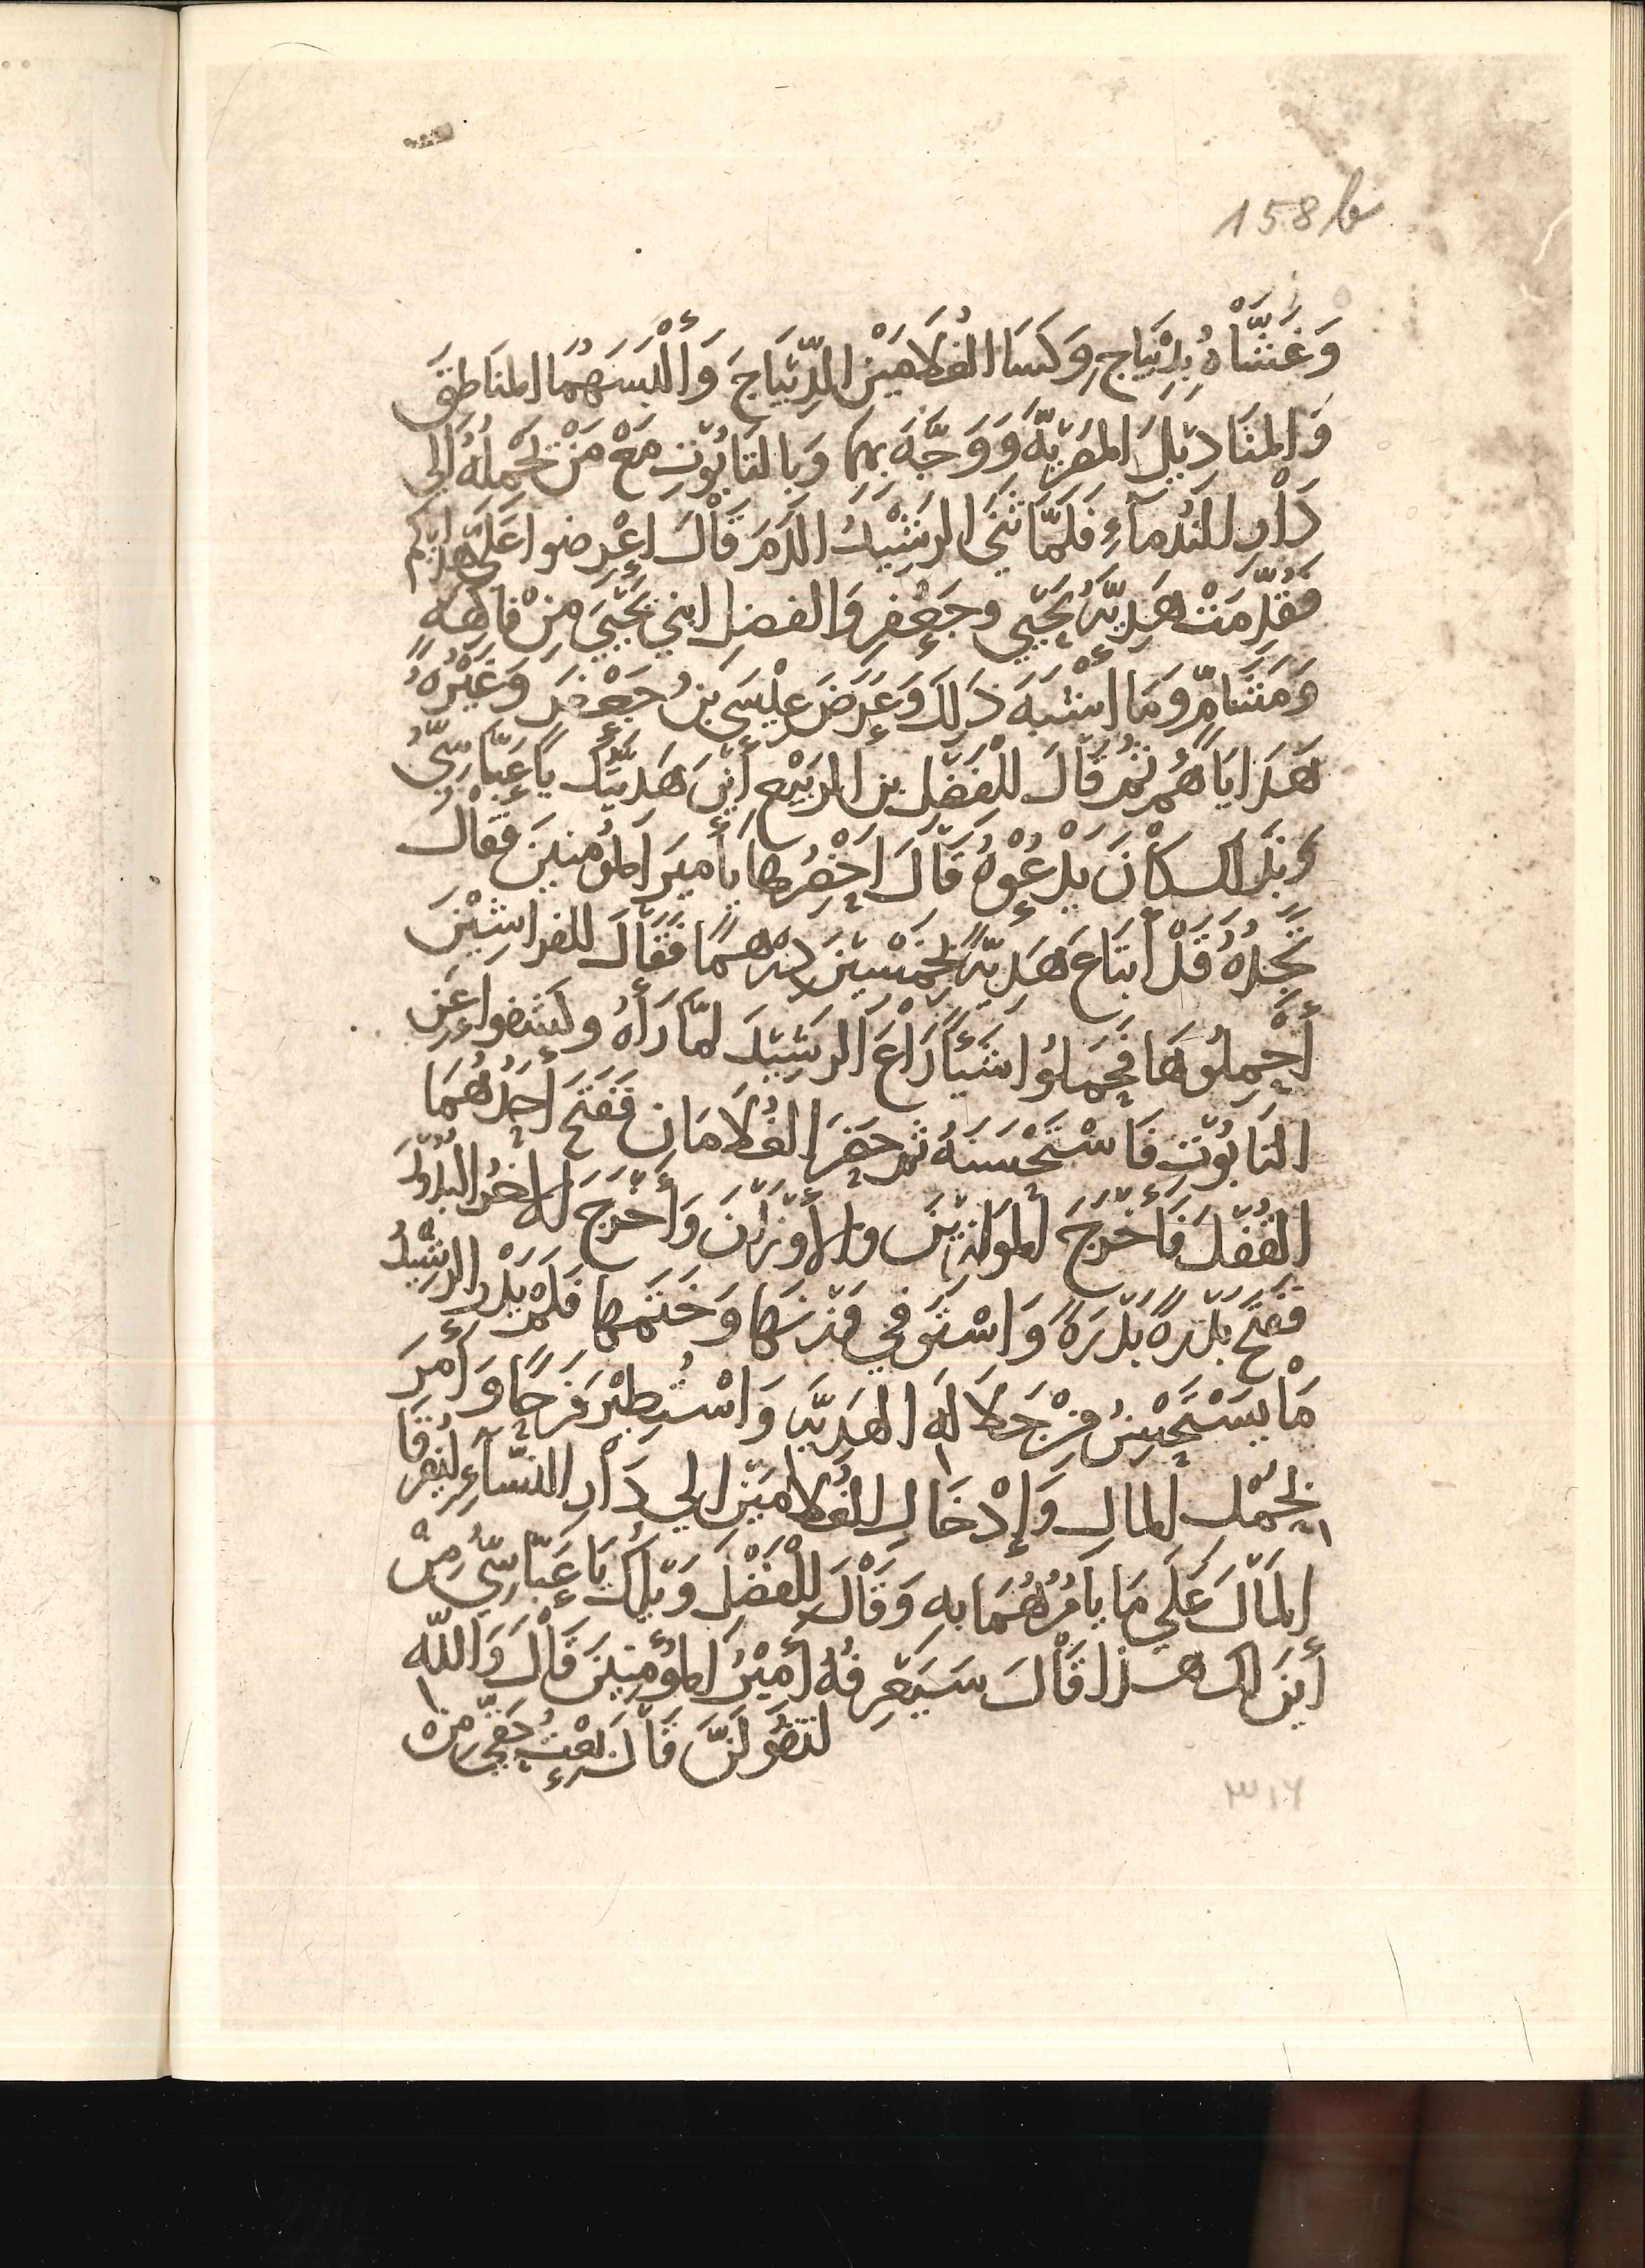 158b
وَغَشَّاهُ بِدِيْبَاجٍ وَكَسَا الغُلَامَيْنِ الدِّيْبَاجَ وَأَلْبَسَهُمَا المَنَاطِقَ
وَالمَنَادِيْلَ المِصْرِيَّةَ وَوَجَّهَ بِهِمَا وَبِالتَابُوْتِ مَعْ مَنْ يَحْمِلُهُ إِلى
دَاْرِ النُدَمآءِ فَلَمَّا ثَنَى الرَشِيْدُ الدَمَ قَاْلَ اعْرِضوا عَلَىَّ هَدَايَاكم
فَقُدِّمَتْ هَدِيَّةُ يَحْيَى وجَعْفرٍ وَالفضلِ ابني يَحْيَىَ مِنْ فَاكهَةٍ
وَمَشَامٍّ وَمَا أَشْبَهَ ذَلِكَ وَعَرَضَ عِيْسَى بنُ جَعْفَرَ وَغَيْرُهُ
هَدَايَاهُمْ ثُمَّ قَاْلَ لِلْفَضْلِ بن الرَبِيْعِ أَيْنَ هَدِيَّتُكَ يَا عَبَّاسِيُّ
وَبِذَلك كَاْنَ يَدْعُوْهُ قَاْلَ اُحْضِرُها يَأَمِيرَ المُؤمِنينَ فَقَاْلَ
تَجِدُهُ قَدْ أبتَاعَ هَدِيَّةً بِخَمْسِيْنَ دِرْهَمًا فَقَاْلَ للفراشِيْنَ
أَحْمِلُوهَا فَحَمَلُوا شَيْأً رَاْعَ الرَشِيْدَ لمَّا رَأَهُ وكَشَفوا عَنِ
التَابُوْتِ فَاسْتَحْسَنَهُ ثم حَضَرَ الغُلَامَانِ فَفَتَحَ أَحَدُهُمَا
القُفْلَ فَأَخْرَجَ المَوَازِيْنَ والأَوْزَاْنَ وَأَخْرَجَ الأَخَرُ البُدُوْرَ
فَفَتَحَ بَدْرَةً بَدْرَةً وَاسْتَوفى وَزْنَهَا وَخَتَمَها فَلَمْ يَدْرِ الرَشِيْدُ
مَاْ يَسْتَحْسِنُ مِنْ جَلَالَةِ الهَدِيَّةِ وَاسْتُطِيْرَ فَرَحًا وَأَمَرَ
بِحَمْلِ المَالِ وَإِدْخَالِ الغُلَامَيْنِ إلى دَاْرِ النِسَّآءِ لِيُفَرِقَا
المَاْلَ عَلَى مَا يَأمُرُهُمَا بِهِ وَقَاْلَ لِلْفَضْلِ وَيْلَكَ يَا عَبَّاسِيُّ مِنْ
أَينَ لك هَذا قَاْلَ سَيَعْرِفُهُ أَمِيْرُ المُؤْمِنِينَ قَاْلَ وَاللّهِ
لتَقُوْلَنَّ قَاْلَ بِعْتُ حَقِّي مِنْ
٣١٦